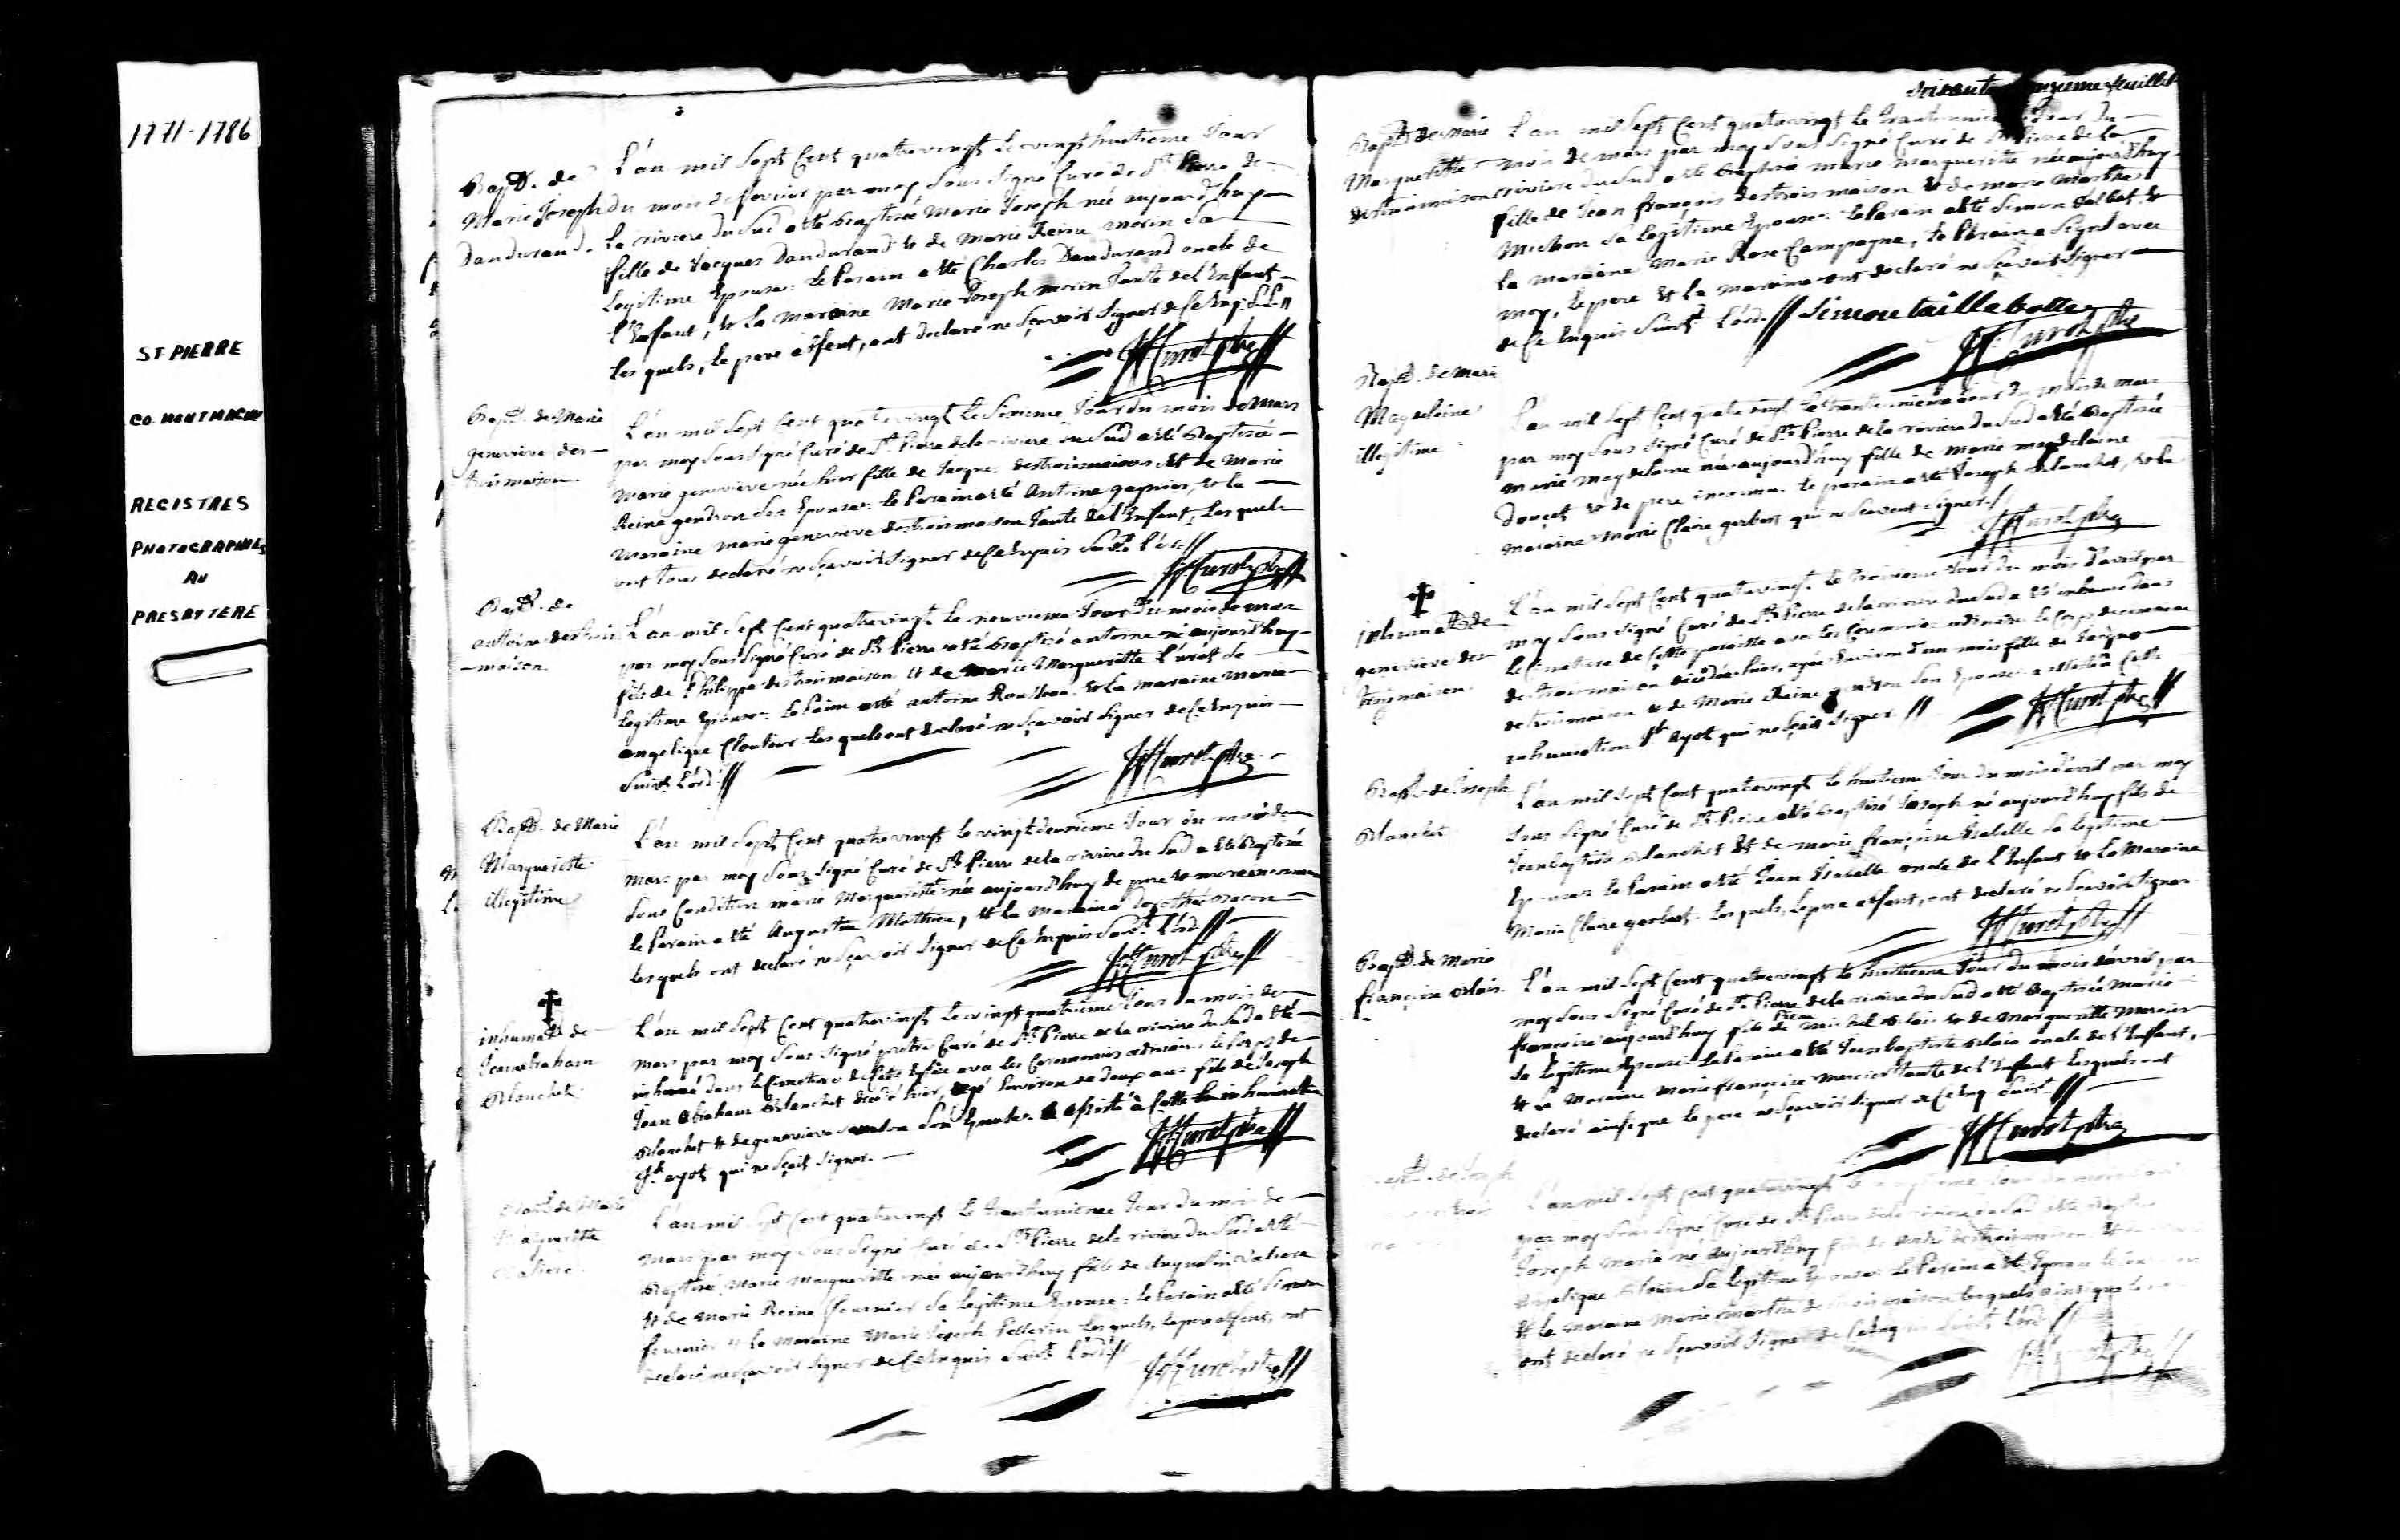 1771-1786
ST PIERRE
CO. MONTMAGNY
REGISTRES
PHOTOGRAPHIES
AU
PRESBYTERE
Bapt. de
Marie Joseph
Dandurand.
L'an mil Sept Cent quatrevingt le vingt huitieme Jour
du mois de fevrier par moy Sous Signé Curé de St Pierre de
la riviere du Sud a été baptisée Marie Joseph née aujourd'huy
fille de Jacques Dandurand & de Marie Reine morin Sa
Legitime Epouse: le Parain a été Charles Dandurand oncle de
l'Enfant, & la Maraine Marie Joseph morin Tante de l'Enfant
les quels, le pere absent, ont declaré ne sçavoir signer de ce Enq:
JJ Curot ptre
Bapt. de Marie
genevieve des-
trois maison.
L'an mil Sept Cent quatrevingt le Sixieme Jour du mois de Mars
par moy Sous Signé Curé de St Pierre de la riviere du Sud a été Baptisée
Marie genevieve née hier fille de Jacques destroismaisons et de Marie
Reine gendron Son Epouse: le Parain a été Antoine gagnier, & la
Maraine Marie genevieve destroismaison Tante de l'Enfant, les quels
ont tous declaré ne sçavoir signer de ce Enquis Suivt. l'ord:
JJ Curot ptre
Bapt. de
antoine destrois
-maison.
L'an mil Sept Cent quatrevingt le neuvieme Jour Du mois de mar
par moy Sous Signé Curé de St Pierre a été baptisé antoine né aujourd'huy
fils de Philippe destroismaison & de Marie Margueritte
legitime Epouse: le Parain a été antoine Rousseau & la maraine Marie
angelique Cloutier les quels ont declaré ne sçavoir signer de ce Enquis
Suivt. l'ord.
JJ Curot ptre
Bapt. de Marie
Margueritte
illegitime
L'an mil Sept Cent quatrevingt le vingt deuxieme Jour du mois de
Mars par moy Sous Signé Curé de St Pierre de la riviere du Sud a été Baptisée
Sous Condition marie Margueritte née aujourd'huy de pere & mere inconnus
le Parain a été Augustin Mathieu, & la Maraine
les quels ont declaré ne sçavoir signer de ce Enquis Suivt. l'ord
JJ Curot ptre
inhumat. de
Jean abraham
Blanchet.
L'an mil Sept Cent quatrevingt le vingt quatrieme Jour du mois de
Mars par moy Sous Signé pretre Curé de St Pierre de la riviere du Sud a été
inhumé dans le Cimetiere de cette Eglise avec les Ceremonies ordinaires le Corps de
Jean Abraham Blanchet decedé hier, agé Environ de deux ans fils de Joseph
Blanchet & de genevieve Son Epouse. a assisté à Cette inhumation
Jh. ayot qui ne sçait signer.
JJ Curot ptre
Bapt. de Marie
Margueritte
L'an mil Sept Cent quatrevingt le trenteunieme Jour du mois de
Mars par moy Sous Signé Curé de St Pierre de la riviere du Sud a été
Baptisée Marie Margueritte née aujourd'huy fille de Augustin
& de Marie Reine fournier Sa legitime Epouse: le Parain a été Simon
fournier & la maraine Marie Joseph Pellerin les quels, le pere absent, ont
declaré ne sçavoir signer de ce Enquis Suivt. l'ord.
JJ Curot ptre
Soixante feuillet
Bapt. de Marie
Margueritte
destroismaison
L'an mil Sept Cent quatrevingt le Jour Du
mois de mars par moy Sous Signé Curé de St Pierre de La
riviere du Sud a été baptisée marie Margueritte née aujourd'huy
fille de Jean françois destroismaison & de marie marthe
Michon Sa legitime Epouse: le Parain a été Simon talbot, &
la maraine Marie Rose Campagna, le Parain a Signé avec
moy, le pere & la maraine ont declaré ne sçavoir signer
de ce Enquis Suivt. l'ord. Simon taillebotte
JJ Curot ptre
Bapt. de Marie
Magdelaine
illegitime
L'an mil Sept Cent quatrevingt le trenteunieme Jour du mois de mars
par moy Sous Signé Curé de St Pierre de la riviere du Sud a été Baptisée
Marie Magdelaine née aujourd'huy fille de Marie magdelaine
& de pere inconnu le parain a été Joseph Blanchet, & la
maraine Marie Claire qui ne sçavent signer
JJ Curot ptre
inhumat. de
genevieve des-
troismaison.
L'an mil Sept Cent quatrevingt le troisieme Jour du mois d'avril par
moy Sous Signé Curé de St Pierre de la riviere du Sud a été inhumée Dans
le Cimetiere de Cette paroisse avec les Ceremonies ordinaires le Corps de genevieve
destroismaison decedée hier, agée Environ d'un mois fille de Jacques
destroismaison & de Marie Reine gendron Son Epouse: a assisté à Cette
inhumation Jh ayot qui ne sçait signer.
JJ Curot ptre
Bapt. de Joseph
Blanchet
L'an mil Sept Cent quatrevingt le huitieme Jour du mois d'avril par moy
Sous Signé Curé de St Pierre a été baptisé Joseph né aujourd'huy fils de
Jean baptiste Blanchet & de marie françoise Isabelle Sa legitime
Epouse: le Parain a été Jean Isabelle oncle de l'Enfant & la Maraine
Marie Claire les quels, le pere absent, ont declaré ne sçavoir signer.
JJ Curot ptre
Bapt. de Marie
françoise blais
L'an mil Sept Cent quatrevingt le huitieme Jour du mois d'avril par
moy Sous Signé Curé de St Pierre de la riviere du Sud a été Baptisée Marie
françoise aujourd'huy fils de Michel Blais & de Margueritte Mercier
Sa legitime Epouse: le Parain a été Jean baptiste blais oncle de l'Enfant,
& la Maraine Marie françoise mercier tante de l'Enfant les quels ont
declaré ainsi que le pere ne sçavoir signer de ce Enq. Suivt.
JJ Curot ptre
Bapt. de Joseph
L'an mil Sept Cent quatrevingt le Jour du mois
par moy Sous Signé Curé de St Pierre de la riviere du Sud a été Baptisé
Joseph Marie né aujourd'huy fils de André destroismaison &
Angelique Sa legitime Epouse: le Parain a été
& la maraine Marie marthe destroismaison les quels ainsi que le
ont declaré ne sçavoir signer de ce Enquis Suivt. l'ord.
JJ Curot ptre